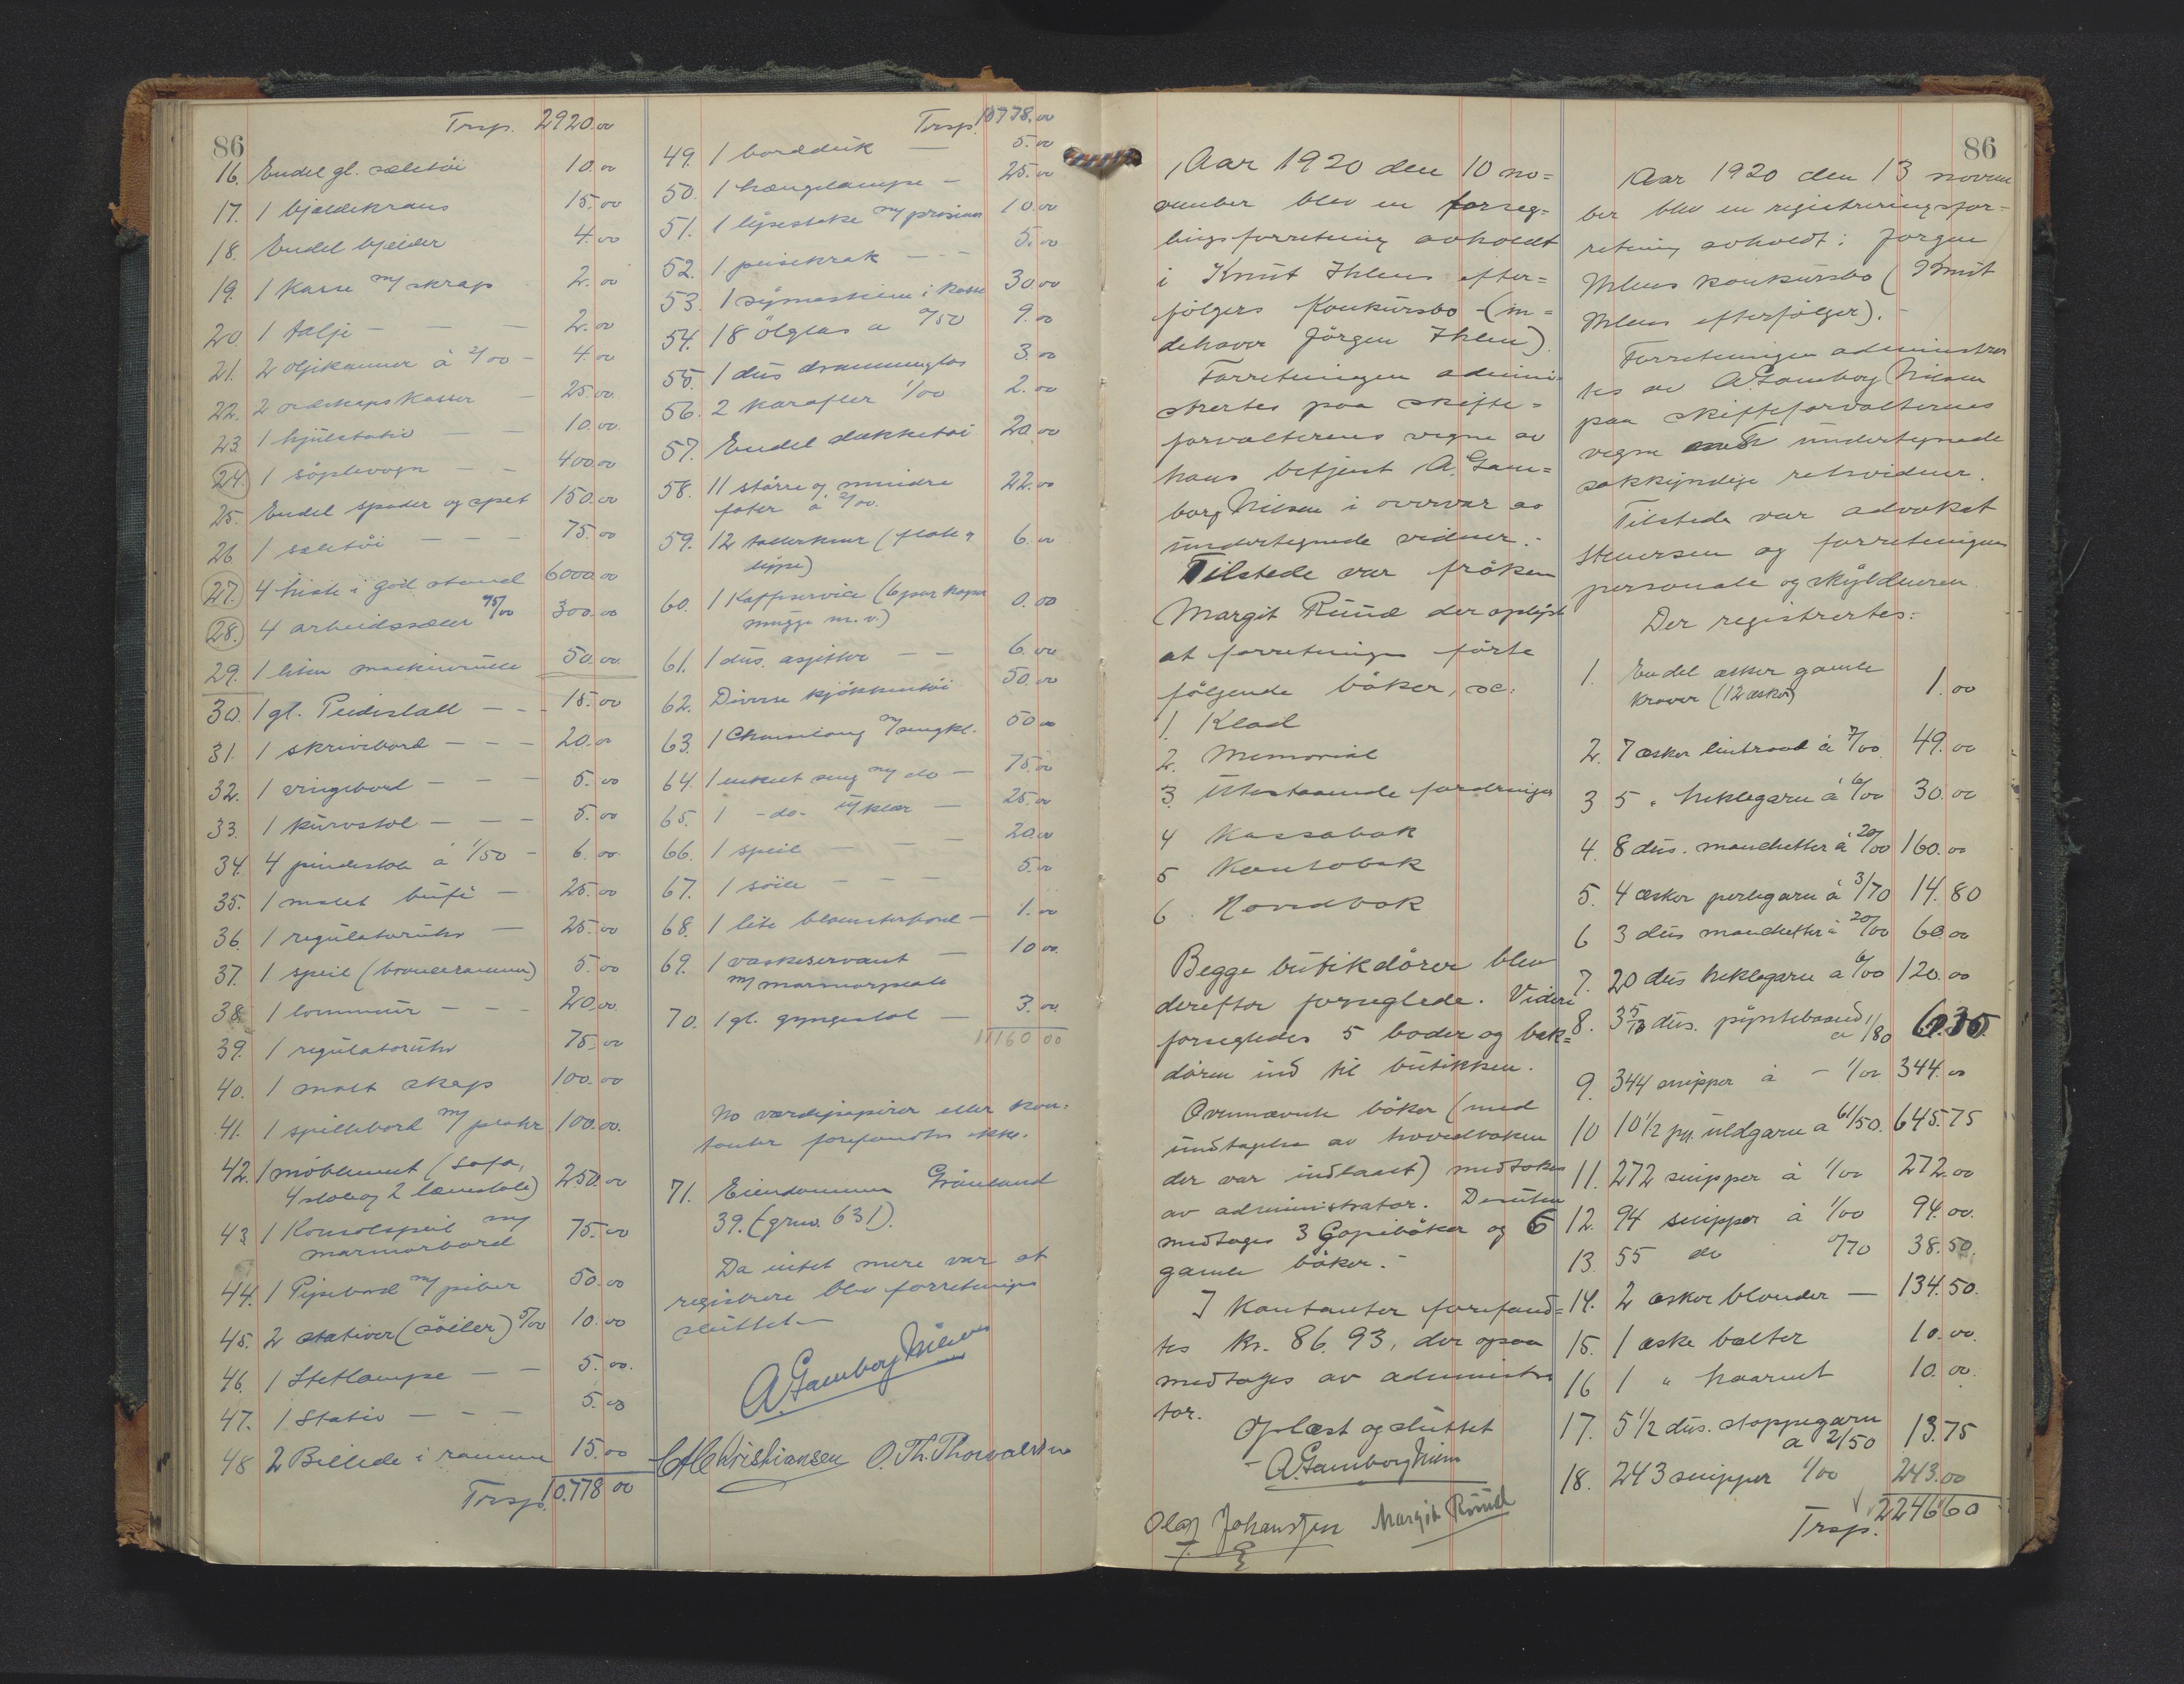 86
Trsp. 2920.00
16. Endel gl. seletöi 10.00
17. 1 bjeldekrans 15.00
18. Endel bjelder 4.00
19. 1 kasse m/ skrap 2.00
20 1 talje — — — 2.00
21. 2 oljekanner á 2/00 — 4.00
22. 2 redskapskasser — 25.00
23. 1 hjulstativ — — 10.00
24. 1 söplevogn — — 400.00
25. Endel spader og spet 150.00
26 1 seletöi — — — 75.00
27. 4 heste i god stand 6000.00
28. 4 arbeidsseler 75/00 300.00
29. 1 liten maskinrulle 50.00
30. 1 gl. Pidestall — — 15.00
31. 1 skrivebord — — — 20.00
32. 1 vringebord — — — 5.00
33. 1 kurvstol — — — 5.00
34. 4 pindestole á 1/50 — 6.00
35. 1 malet bufé — 25.00
36. 1 regulatoruhr — 25.00
37. 1 speil (bronceramme) 5.00
38. 1 lommeur — — — 20.00
39. 1 regulatoruhr 75.00
40. 1 malt skap 100.00
41. 1 spillebord m/ plater 100.00.
42. 1 möblement (Sofa,
4 stole og 2 lænestole) 250.00
43. 1 Konsolspeil m/
marmorbord 75.00
44. 1 Pipebord m/ piber 50.00
45. 2 stativer (söiler) 5/00 10.00
46. 1 Stetlampe — — 5.00.
47. 1 Stativ — — — 5.00
48 2 Billede i ramme 15.00
Trsp. 10.778 00
Trsp. 10778.00
49. 1 bordduk — 5.00
50. 1 hængelampe — 25.00
51. 1 lysestake m/ prismer 10.00
52. 1 peisekrak — — 5.00
53. 1 symaskine i kasse 30.00
54. 18 ölglas a 0/50 9.00
55. 1 dus drammeglas 3.00
56. 2 karafler 1/00 2.00
57. Endel dækketöi 20.00
58. 11 större og mindre
fater á 2/00. 22.00
59. 12 tallerkner (flate og
dype) 6.00
60. 1 Kaffeservice (6 par kopper
mugge m.v.) 0.00
61. 1 dus. asjetter — — 6.00
62. Diverse kjökkentöi 50.00
63. 1 Chaiselong m/ sengkl. 50.00
64. 1 enkelt seng m/ do — 75.00
65. 1 -do- u/ klær — 25.00
66. 1 speil — — — 20.00
67. 1 söile — — — 5.00
68. 1 lite blomsterbord — 1.00
69. 1 vaskeservant — 10.00.
m/ marmorplate
70. 1 gl. gyngestol — 3.00.
11160 00
No værdipapirer eller kon-
tanter forefandtes ikke.
71. Eiendommen Grönland
39. (grno. 631).
Da intet mere var at
registrere blev forretningen
sluttet. —
A. Gamborg Nilsen
C. H. Christiansen O. Th. Thorvaldsen
86
Aar 1920 den 10 no=
vember blev en forseg=
lingsforretning avholdt
i Knut Ihlens efter=
fölgers Konkursbo (in=
dehaver Jörgen Ihlen).
Forretningen admini-
strertes paa skifte=
forvalterens vegne av
hans betjent A. Gam=
borg Nilsen i overvær av
undertegnede vidner. —
Tilstede var fröken
Margit Ruud der oplyste
at forretningen förte
fölgende böker, se:
1. Klad
2. Memorial
3. Utestaaende fordringer
4 Kassabok
5 Kontobok
6. Hovedbok
Begge butikdörer blev
derefter forseglede. Videre
forsegledes 5 boder og bak=
dören ind til butikken.
Ovennævnte böker (med
undtagelse av hovedboken
der var indlaast) medtokes
av administrator. Desuten
medtoges 3 Copiböker og 6
gamle böker. —
I Kontanter forefand=
tes kr. 86.93, der ogsaa
medtoges av administra
tor.
Oplæst og sluttet
A. Gamborg Nilsen
Olaf Johansen Margit Ruud
Aar 1920 den 13 novem
ber blev en registreringsfor-
retning avholdt i Jørgen
Ihlens konkursbo (Knut
Ihlens efterfölger). —
Forretningen administrer
tes av A. Gamborg Nilsen
paa skifteforvalterens
vegne med undertegnede
sakkyndige retsvidner.
Tilstede var advokat
Stenersen og forretningens
personale og skyldneren.
Der registrertes:
1. Endel æsker gamle
kraver (12 æsker) 1.00
2. 7 æsker lintraad á 7/00 49.00
3 5 " heklegarn á 6/00 30.00
4. 8 dus. manchetter á 20/00 160.00
5. 4 æsker perlegarn á 3/70 14.80
6 3 dus manchetter á 20/00 60.00
7. 20 dus heklegarn a 6/00 120.00
8. 3 5/12 dus. pyntebaand
a 1/80 6.35
9. 344 snipper á — 1/00 344.00
10 10 1/2 pk. uldgarn a 61/50. 645.75
11. 272 snipper á 1/00 272.00
12. 94 snipper á 1/00 94.00.
13. 55 do 0/70 38.50.
14. 2 æsker blonder — 134.50.
15. 1 æske belter 10.00.
16 1 " haarnet 10.00.
17. 5 1/2 dus. stoppegarn
a 2/50 13.75
18. 243 snipper 1/00 243.00
Trsp. 2246 60